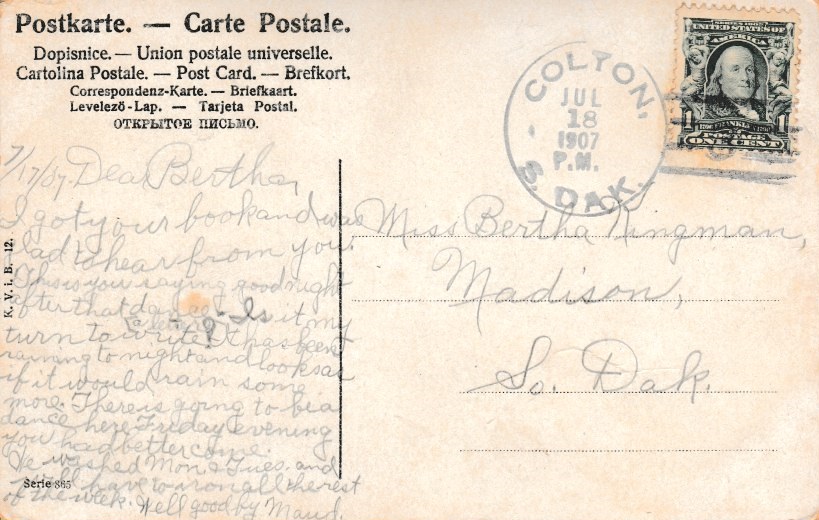 Postkarte. — Carte Postale.
Dopisnice. — Union postale universelle.
Cartolina Postale. — Post Card. — Brefkort.
Correspondenz-Karte. — Briefkaart.
Levelező-Lap. — Tarjeta Postal.
ОТКРЫТОЕ ПИСЬМО.
COLTON,
JUL
18
1907
P.M.
S. DAK.
SERIES 1902
UNITED STATES OF
AMERICA
1 FRANKLIN 1
1706 1790
POSTAGE
ONE CENT
7/17/07. Dear Bertha,
I got your book and was
glad to hear from you.
This is you saying good night
after that dance. Is it my
turn to write? It has been
raining to night and looks as
if it would rain some
more. There is going to be a
dance here Friday evening
you had better come.
We washed Mon & Tues. and
will have to iron all the rest
of the week. Well good by Maud.
Miss Bertha Kingman,
Madison,
So. Dak.
K. V. i. B. 12.
Serie 865